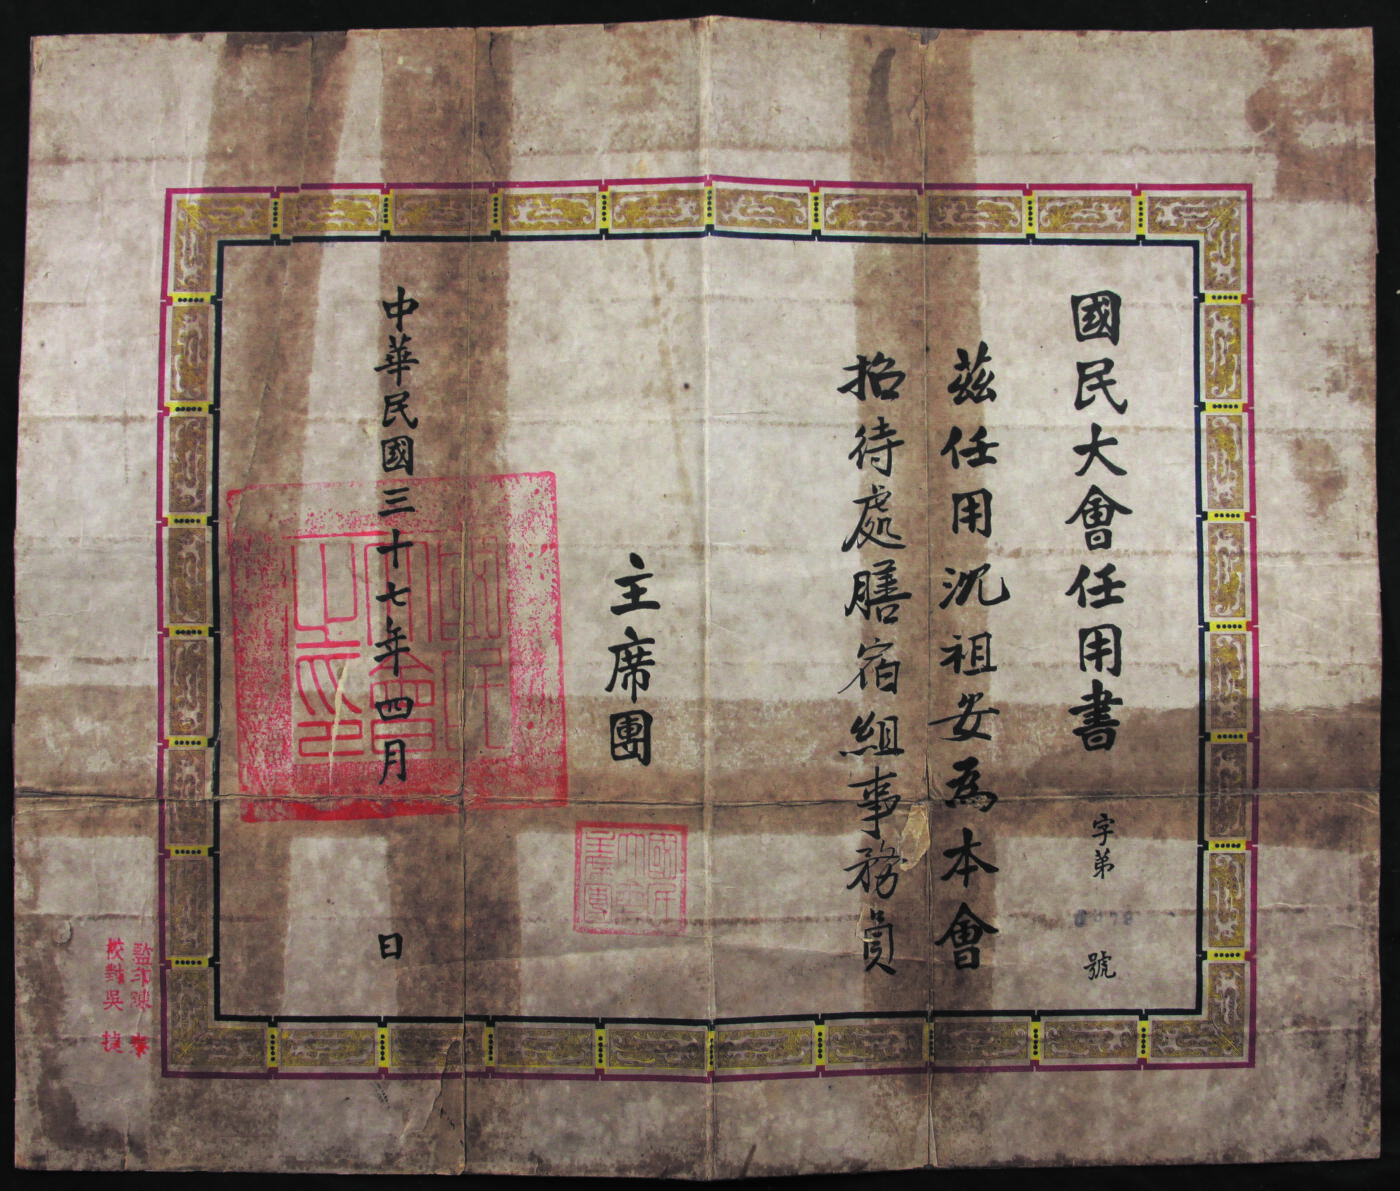 國民大會任用書
字第
號
茲任用沈祖安為本會
招待處膳宿組事務員
主席團
國民大會主席團
中華民國三十七年四月 日
國民大會之印
監印陳
校對吳